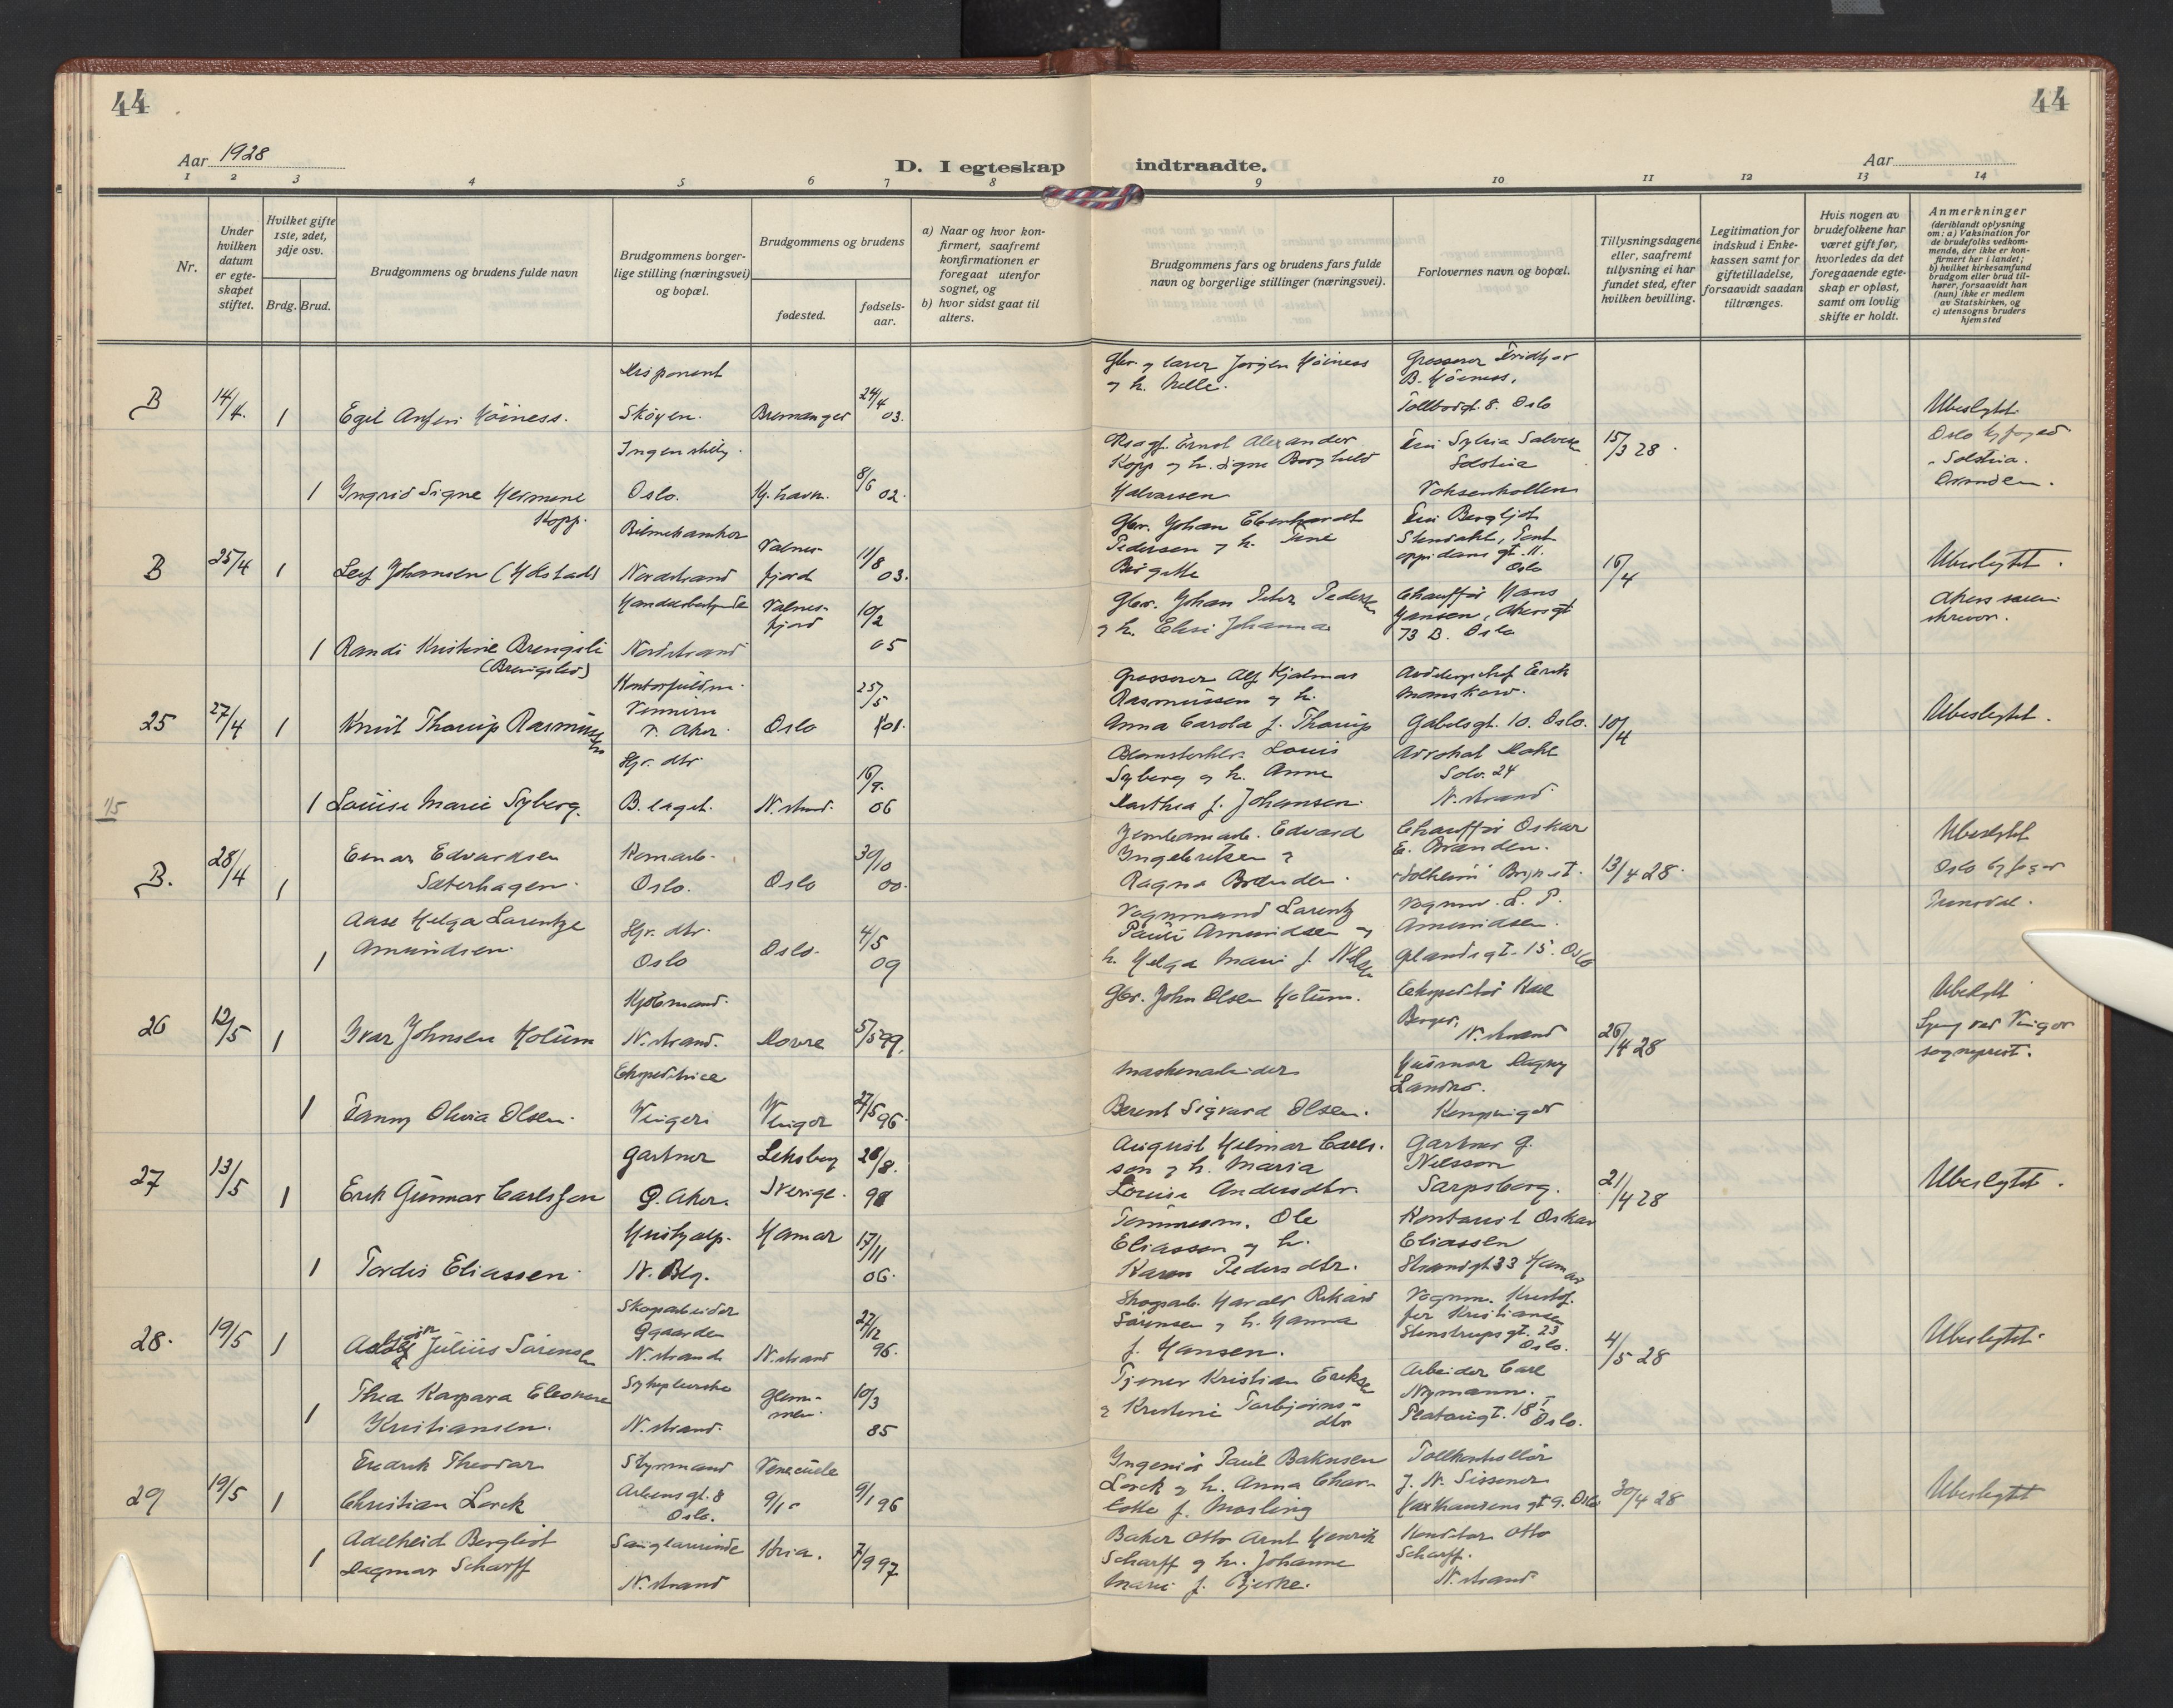 44
44
Aar 1928
D. I egteskap
indtraadte.
Aar
1 2 3 4 5 6 7 8 9 10 11 12 13 14
Nr.
Under hvilken datum er egteskapet stiftet.
Hvilket gifte 1ste, 2det, 3dje osv.
Brdg. Brud.
Brudgommens og brudens fulde navn
Brudgommens borgerlige stilling (næringsvei) og bopæl.
Brudgommens og brudens
fødested.
fødselsaar.
a) Naar og hvor konfirmert, saafremt konfirmationen er foregaat utenfor sognet, og
b) hvor sidst gaat til alters.
Brudgommens fars og brudens fars fulde navn og borgerlige stillinger (næringsvei).
Forlovernes navn og bopæl.
Tillysningsdagene eller, saafremt tillysning ei har fundet sted, efter hvilken bevilling.
Legitimation for indskud i Enkekassen samt for giftetilladelse, forsaavidt saadan tiltrænges.
Hvis nogen av brudefolkene har været gift før, hvorledes da det foregaaende egteskap er opløst, samt om lovlig skifte er holdt.
Anmerkninger (deriblandt oplysning om: a) Vaksination for de brudefolks vedkommende, der ikke er konfirmert her i landet; b) hvilket kirkesamfund brudgom eller brud tilhører, forsaavidt han (hun) ikke er medlem av Statskirken, og c) utensogns bruders hjemsted
B 14/4. 1 Egil Høiness. Disponent Skøyen. Bremanger 24/4 03.
Gbr. og Jørgen Høiness og h. Helle.
Grosserer Fridtjor B. Høiness, Tollbodgt. 8. Oslo
15/3 28.
Ubeslegtet.
Oslo byfoged
1 Ingrid Signe Hermine Kopp. Ingen stillg. Oslo. Kj.havn. 8/6 02.
Ernst Alexander Kopp og h. Signe Borghild Halvorsen
Fru Sylvia Salvesen Solstua Voksenkollen
B 25/4 1 Leif Johansen (Ydstad) Nordstrand Valnesfjord 11/8 03.
Gbr. Johan Eberhardt Pedersen og h. Birgitte
Fru Bergljot Oslo
16/4
Ubeslegtet.
Akers sorenskriver.
1 Randi Kristine Brengsli (Brengslid) Nordstrand Valnesfjord 10/2 05
Gbr. Johan Peter Pedersen og h. Elise Johanna
Chauffør Hans Jansen, Akersgt 73 B. Oslo
25 27/4 1 Knut Thorup Rasmussen V. Aker. Oslo 25/5 01.
Grosserer Alf Hjalmar Rasmussen og h. Anna Carola f. Thorup
Erik Gabelsgt. 10. Oslo.
10/4
Ubeslegtet.
1/5 1 Louise Marie Syberg. Hjv. dtr B.laget. N.strand. 16/9. 06
Blomsterhlr. Louis Syberg og h. Anne Dorthea f. Johansen.
Solv. 24 N.strand
B. 28/4 1 Einar Edvardsen Sæterhagen. Oslo. Oslo 30/10 00.
Edvard Ingebretsen og Ragna Brænden.
Chauffør Oskar E. Brænden. "Solheim" Bryn st.
13/4 28.
Ubeslegtet
Oslo byfoged
1 Aase Helga Larentze Amundsen. Hjv. dtr. Oslo Oslo. 4/5 09
Vognmand Larentz Pauli Amundsen og h. Helga Marie f. Nilsen
Vognm. L. P. Amundsen. 15. Oslo
26 12/5 1 Ivar Johnsen Holum Kjøbmand. N.strand. Dovre 5/5 99.
Gbr. John Olsen Holum.
Ekspeditør Karl Berger, N.strand
26/4 28
Lyst ved Vinger sogneprest.
1 Fanny Olivia Olsen. Ekspeditrice Vinger Vinger 27/5 96.
Maskinarbeider Berent Sigvard Olsen.
Kongsvinger
27 13/5 1 Erik Gunnar Carlsson Gartner Ø. Aker. Leksberg Sverige. 28/8. 98
August Hilmar Carlsson og h. Maria Lovise Andersdtr.
Gartner G. Nilsson Sarpsborg.
21/4 28
Ubeslegtet.
1 Tordis Eliassen Hushjælp. N. Blg. Hamar 17/11 06.
Tømmerm. Ole Eliassen og h. Karen Pedersdtr.
Kontorist Oskar Eliassen Strandgt. 33 Hamar
28. 19/5 1 Julius Sørensen Skoarbeider N.strand N.strand 27/12 96.
Harald Rikard Sørensen og h. Hanna f. Hansen.
Vognm. Kristoffer Kristiansen Stenstrupsgt. 23 Oslo.
4/5 28
Ubeslegtet.
1 Thea Kaspara Eleonore Kristiansen. Sykepleierske N.strand. Glemmen. 10/3 85
Tjener Kristian Eriksen og Kristine Torbjørnsdtr
Arbeider Carl Nymann. Platousgt. 18 I Oslo.
29 19/5 1 Fredrik Theodor Christian Lorck Styrmand Arbensgt. 8 Oslo. Venezuela 9/1 96
Ingeniør Paul Lorck og h. Anna Charlotte f. Mosling
Tollkontrollør J. N. Sissener Oslo
30/4 28
Ubeslegtet
1 Adelheid Bergliot Dagmar Scharff Sanglærerinde N.strand Kria. 7/9 97
Baker Otto Arnt Henrik Scharff og h. Johanne Marie f. Bjerke.
Konditor Otto Scharff. N.strand